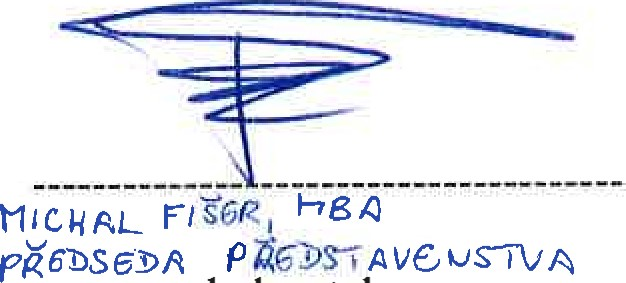 MICHAL FIŠER, MBA
PŘEDSEDA PŘEDSTAVENSTVA